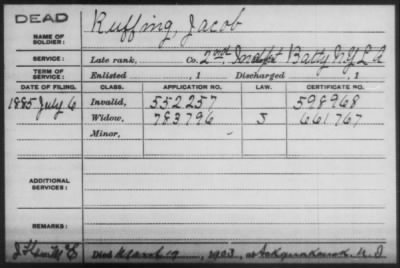 DEAD
NAME OF SOLDIER: Ruffing, Jacob
SERVICE: Late rank, Co. 2nd Indpt Batty N.Y. L A
TERM OF SERVICE: Enlisted , 1 Discharged , 1
DATE OF FILING. CLASS. APPLICATION NO. LAW. CERTIFICATE NO.
1885 July 6 Invalid, 552257 598968
Widow, 783796 J 661767
Minor,
ADDITIONAL SERVICES:
REMARKS:
Died March 19, 1903, at N. J